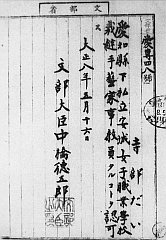 文部省
愛専四八號
寺部だい
愛知縣下私立安城女子職業學校
裁縫手藝家事教員タルコトヲ認可ス
大正八年五月十六日
文部大臣中橋德五郎